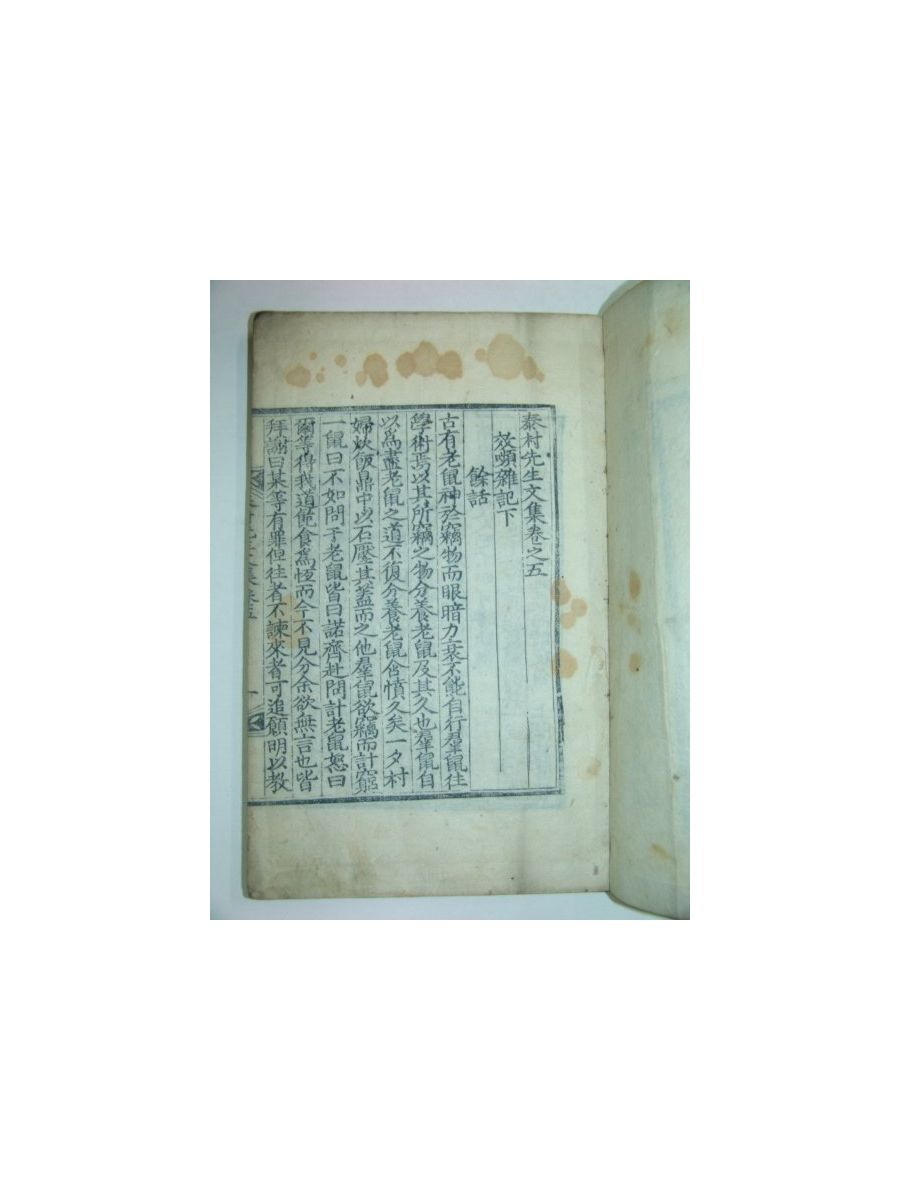 泰村先生文集卷之五
效嚬雜記下
餘話
古有老鼠神於竊物而眼暗力衰不能自行羣鼠往
學術焉以其所竊之物分養老鼠及其久也羣鼠自
以爲盡老鼠之道不復分養老鼠含憤久矣一夕村
婦炊飯鼎中以石壓其蓋而之他羣鼠欲竊而計窮
一鼠曰不如問于老鼠皆曰諾齊赴問計老鼠怒曰
爾等得我道飽食爲恆而今不見分余欲無言也皆
拜謝曰某等有罪但往者不諫來者可追願明以教